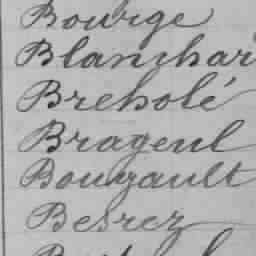 Bourge
Blanchar
Breholé
Brageul
Bougault
Besrez